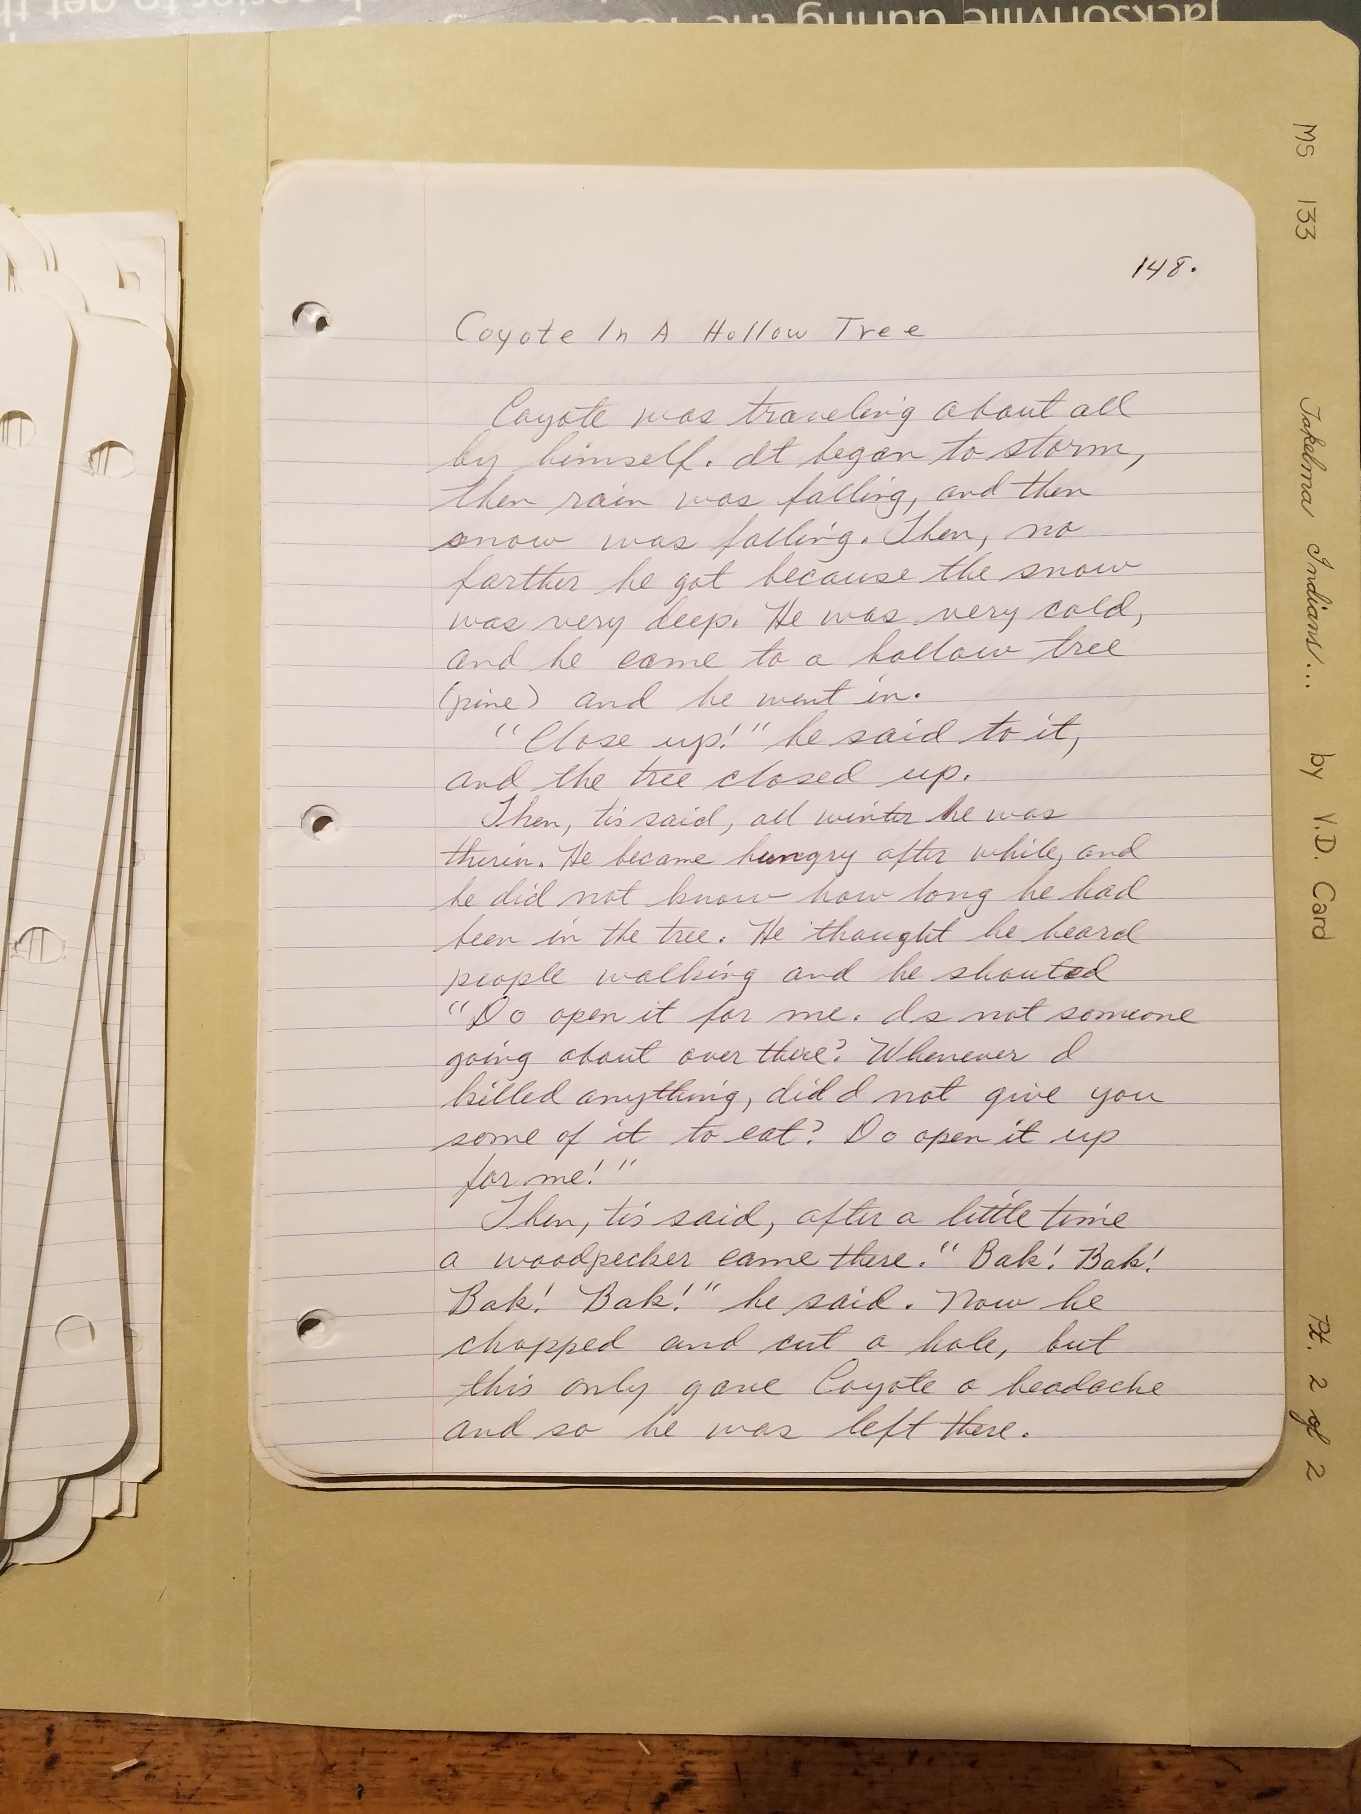 Jacksonville during the
to get th
148.
Coyote In A Hollow Tree
Coyote was traveling about all
by himself. It began to storm,
then rain was falling, and then
snow was falling. Then, no
farther he got because the snow
was very deep. He was very cold,
and he came to a hollow tree
(pine) and he went in.
"Close up!" he said to it,
and the tree closed up.
Then, tis said, all winter he was
therin. He became hungry after while, and
he did not know how long he had
been in the tree. He thought he heard
people walking and he shouted
"Do open it for me. Is not someone
going about over there? Whenever I
killed anything, did I not give you
some of it to eat? Do open it up
for me!"
Then, tis said, after a little time
a woodpecker came there. "Bak! Bak!
Bak! Bak!" he said. Now he
chopped and cut a hole, but
this only gave Coyote a headache
and so he was left there.
MS 133 Takelma Indians... by V.D. Card Pt. 2 of 2